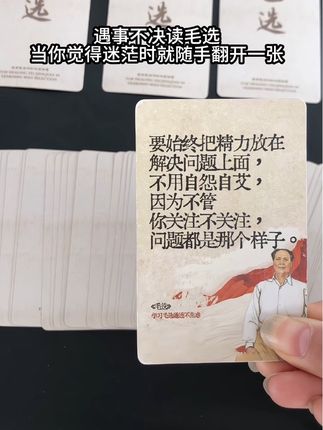 遇事不决读毛选
当你觉得迷茫时就随手翻开一张
选
选
选
要始终把精力放在
解决问题上面，
不用自怨自艾，
因为不管
你关注不关注，
问题都是那个样子。
《毛选》
学习毛选通透不焦虑